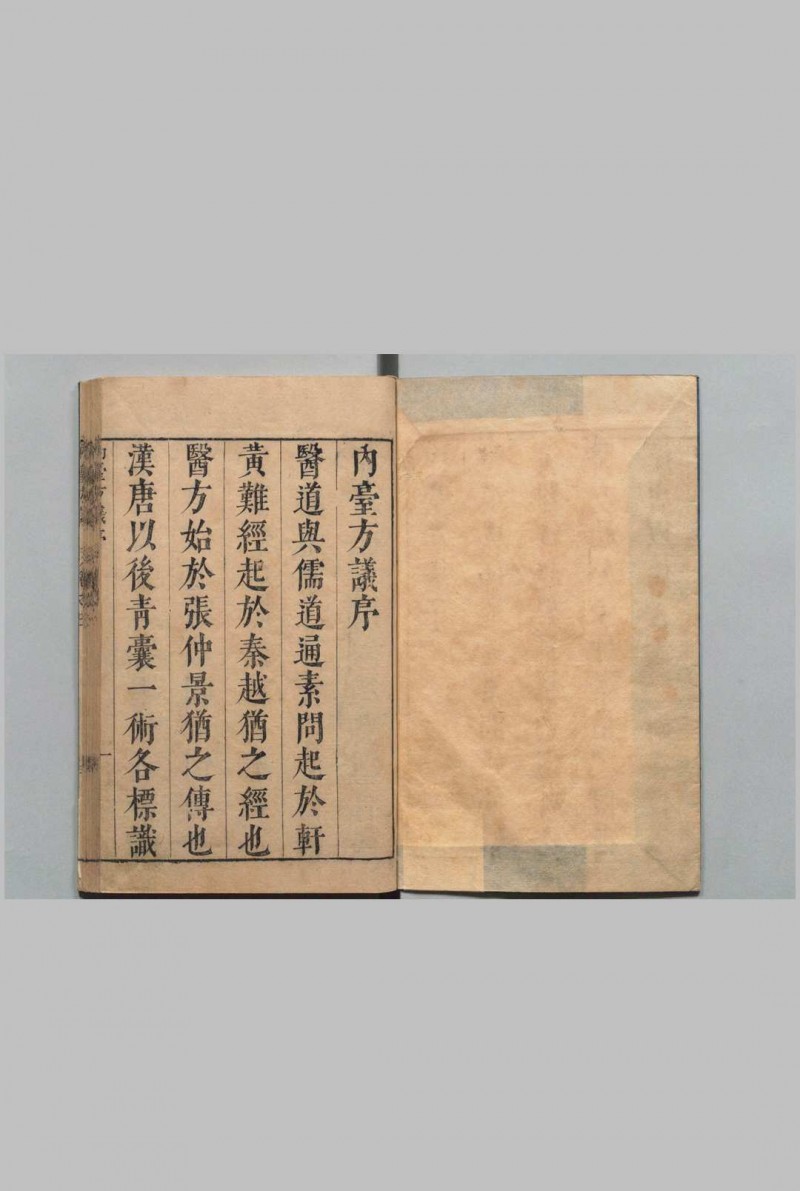 內臺方議序
醫道與儒道通素問起於軒
黃難經起於秦越猶之經也
醫方始於張仲景猶之傳也
漢唐以後青囊一術各標識
內臺方議序
一